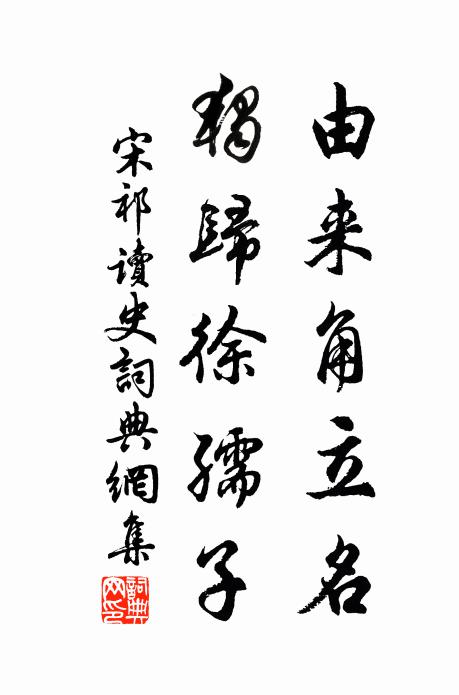 由来角立名
獨歸徐孺子
宋祁讀史詞典網集
詞典网印